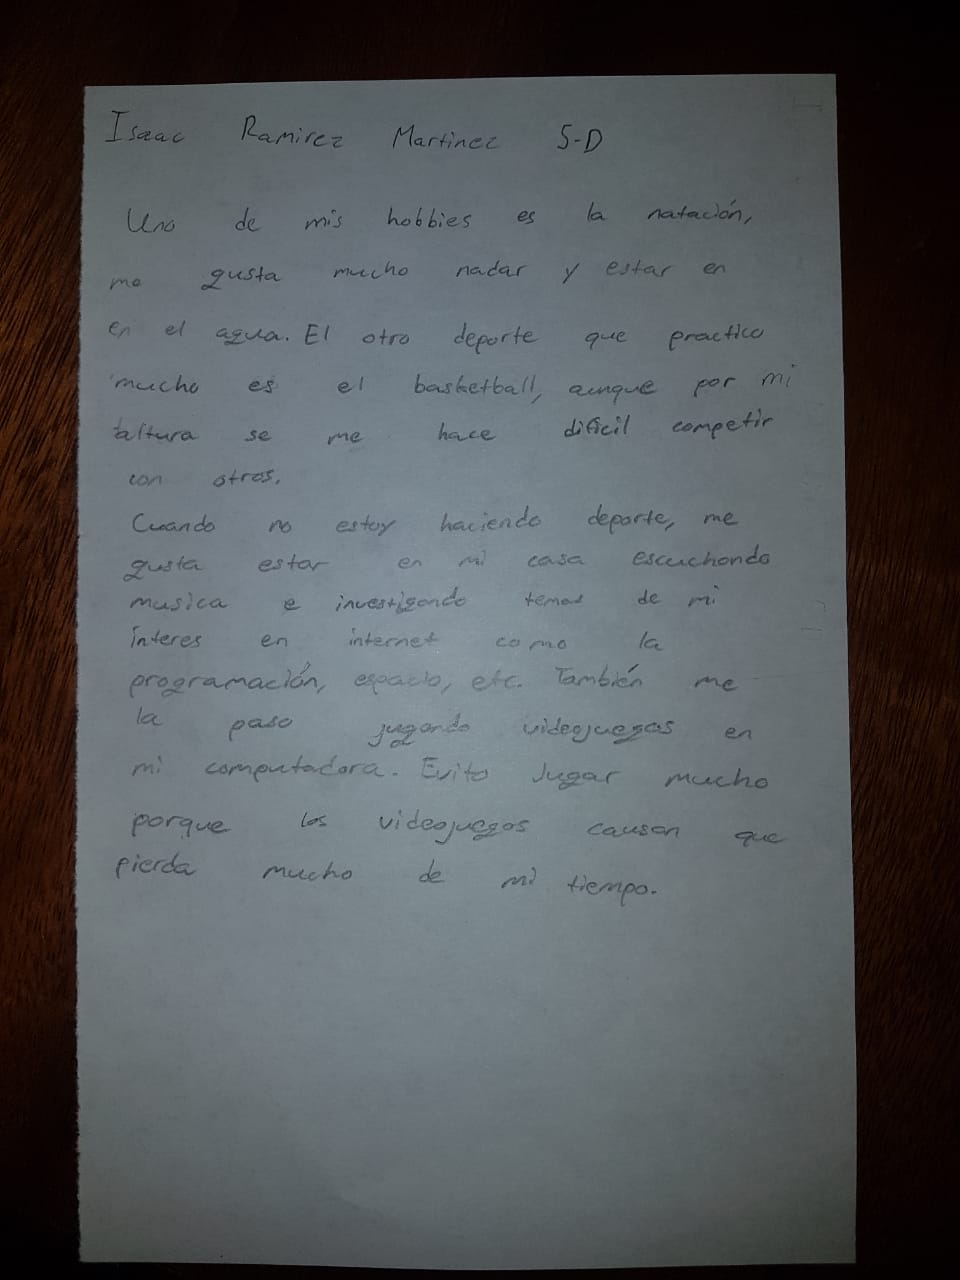 Isaac Ramirez Martinez 5-D
Uno de mis hobbies es la natación,
me gusta mucho nadar y estar en
en el agua. El otro deporte que practico
mucho es el basketball, aunque por mi
altura se me hace dificil competir
con otros.
Cuando no estoy haciendo deporte, me
gusta estar en mi casa escuchando
musica e investigando temas de mi
interes en internet como la
programación, espacio, etc. También me
la paso jugando videojuegos en
mi computadora. Evito Jugar mucho
porque los videojuegos causan que
pierda mucho de mi tiempo.